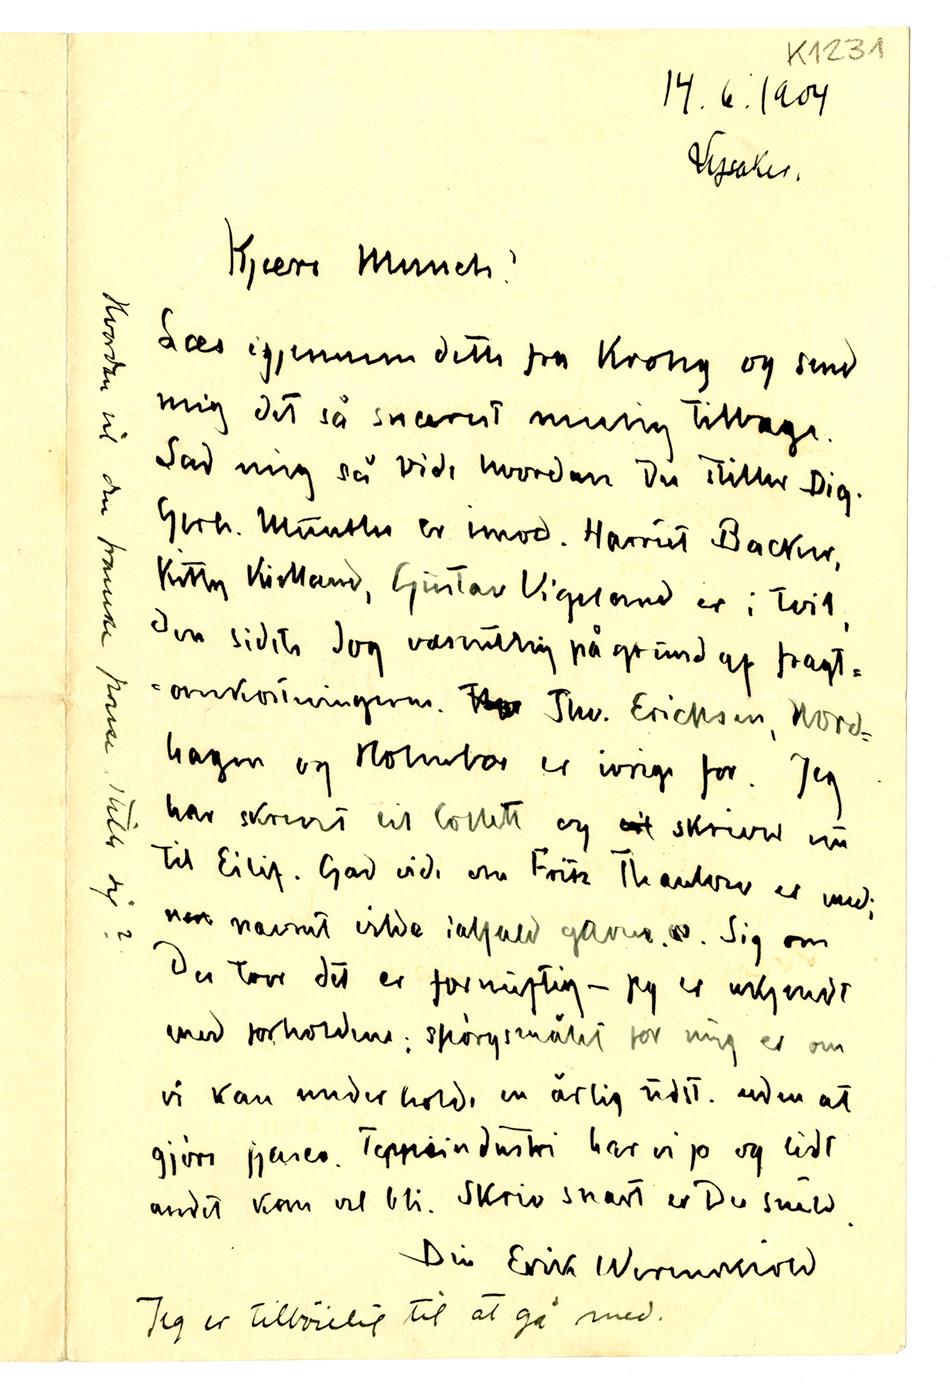 K1231
14.6.1904
Lysaker.
Kjære Munch!
Læs igjennem dette fra Krohg og send
mig det så snarest mulig tilbage.
Lad mig så vide hvordan Du stiller Dig.
Gerh. Munthe er imod. Harriet Backer,
Kitty Kielland, Gustav Vigeland er i tvil,
den sidste dog væsentlig på grund af fragt-
-omkostningerne. Thv. Erichsen, Nord-
hagen og Holmboe er ivrige for. Jeg
har skrevet til Collett og skriver nu
til Eilif. Gad vide om Fritz Thaulow er med;
navnet vilde ialfald gavne. Sig om
Du tror det er fornuftig – jeg er ukjendt
med forholdene; spørgsmålet for mig er om
vi kan underholde en årlig udst. uden at
gjøre fiasco. Teppeindustri har vi jo og lidt
andet kan vel bli. Skriv snart er Du snild.
Din Erik Werenskiold
Jeg er tilbøielig til at gå med.
Hvordan vil den franske presse stille sig?